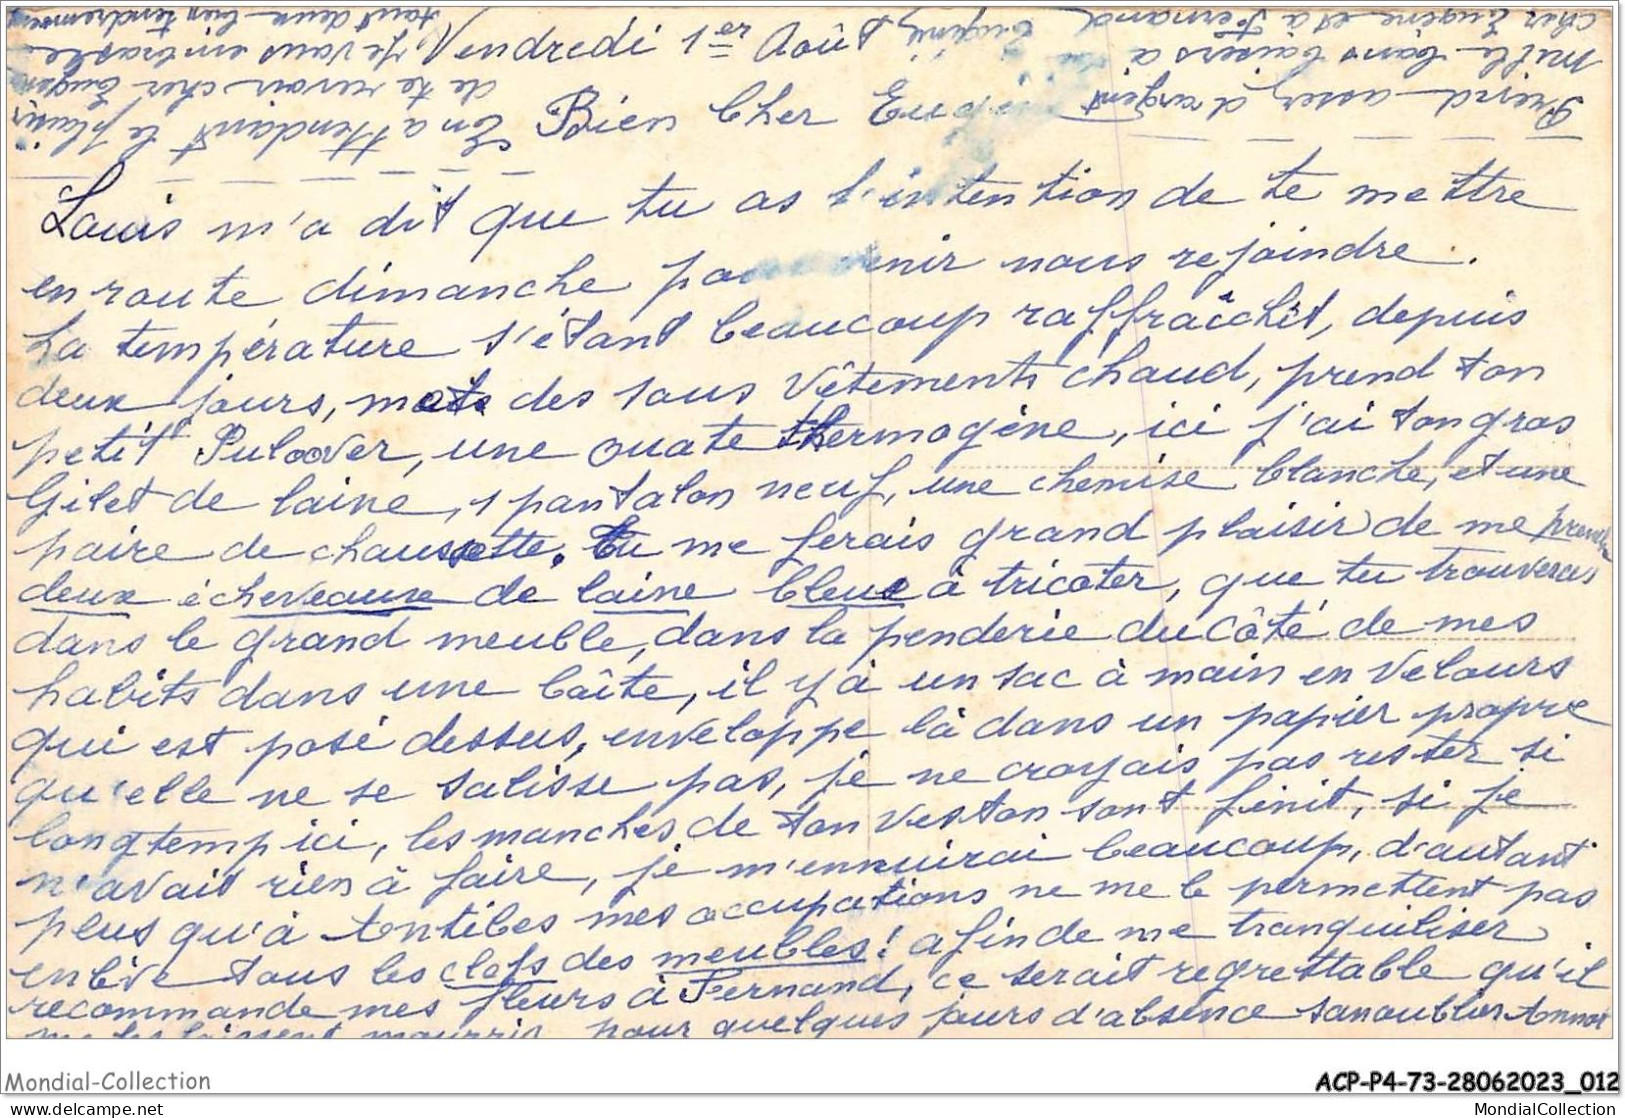 Vendredi 1er Août
Bien Cher Eugène
Louis m'a dit que tu as l'intention de te mettre
en route dimanche pour venir nous rejoindre.
La température s'étant beaucoup raffraîchit, depuis
deux jours, mets des sous vêtements chaud, prend ton
petit Puloover, une ouate thermogène, ici j'ai ton gros
Gilet de laine, 1 pantalon neuf, une chemise blanche, et une
paire de chaussette. Tu me ferais grand plaisir de me prendre
deux écheveaux de laine bleue à tricoter, que tu trouveras
dans le grand meuble, dans la penderie du côté de mes
habits dans une boîte, il y à un sac à main en velours
qui est posé dessus, enveloppe là dans un papier propre
qu'elle ne se salisse pas, je ne croyais pas rester si
longtemp ici, les manches de ton veston sont finit, si je
n'avait rien à faire, je m'ennuirai beaucoup, d'autant
plus qu'à Antibes mes occupations ne me le permettent pas
enlève tous les clefs des meubles! afin de me tranquiliser
recommande mes fleurs à Fernand, ce serait regrettable qu'il
me les laissent mourrir pour quelques jours d'absence sanoublier
Prend assez d'argent
Mille bons baisers à
cher Eugène et à Fernand
Eugénie
En attendant le plaisir
de te revoir cher Eugène
je vous embrasse
tout deux bien tendrement
Mondial-Collection
ACP-P4-73-28062023_012
delcampe.net
MondialCollection